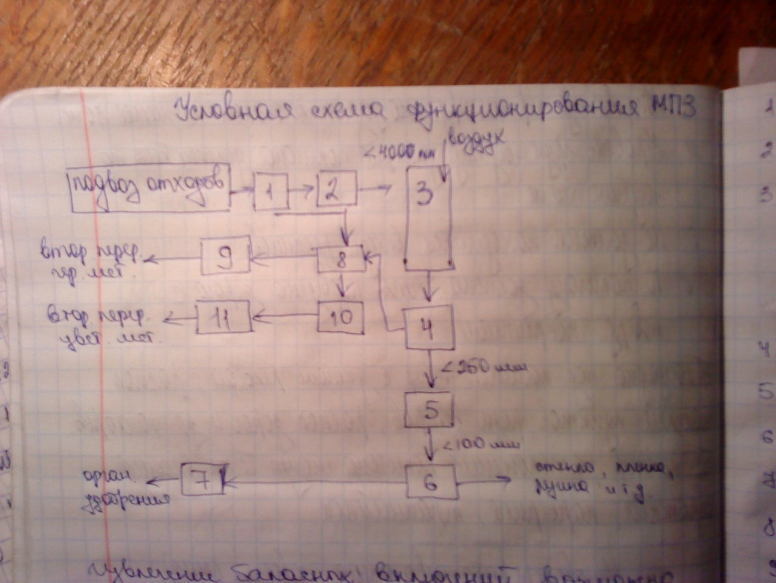 Условная схема функционирования МПЗ
воздух
<4000 мм
подвоз отходов
1
2
3
втор перер.
9
8
втор перер.
цвет. мет.
11
10
4
<250 мм
5
<100 мм
орган
удобрения
7
6
стекло, пленка,
резина и т д
баласных включений возможно
1
2
3
4
5
6